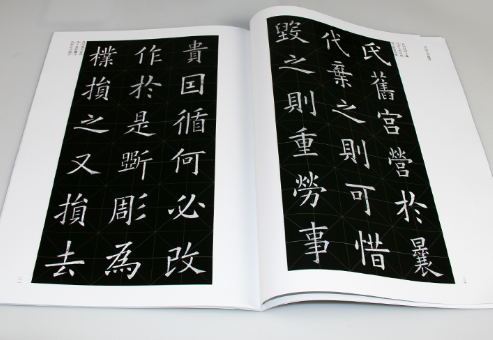 氏舊宮營於曩
代棄之則可惜
毀之則重勞事
貴因循何必改
作於是斲彫為
樸損之又損去